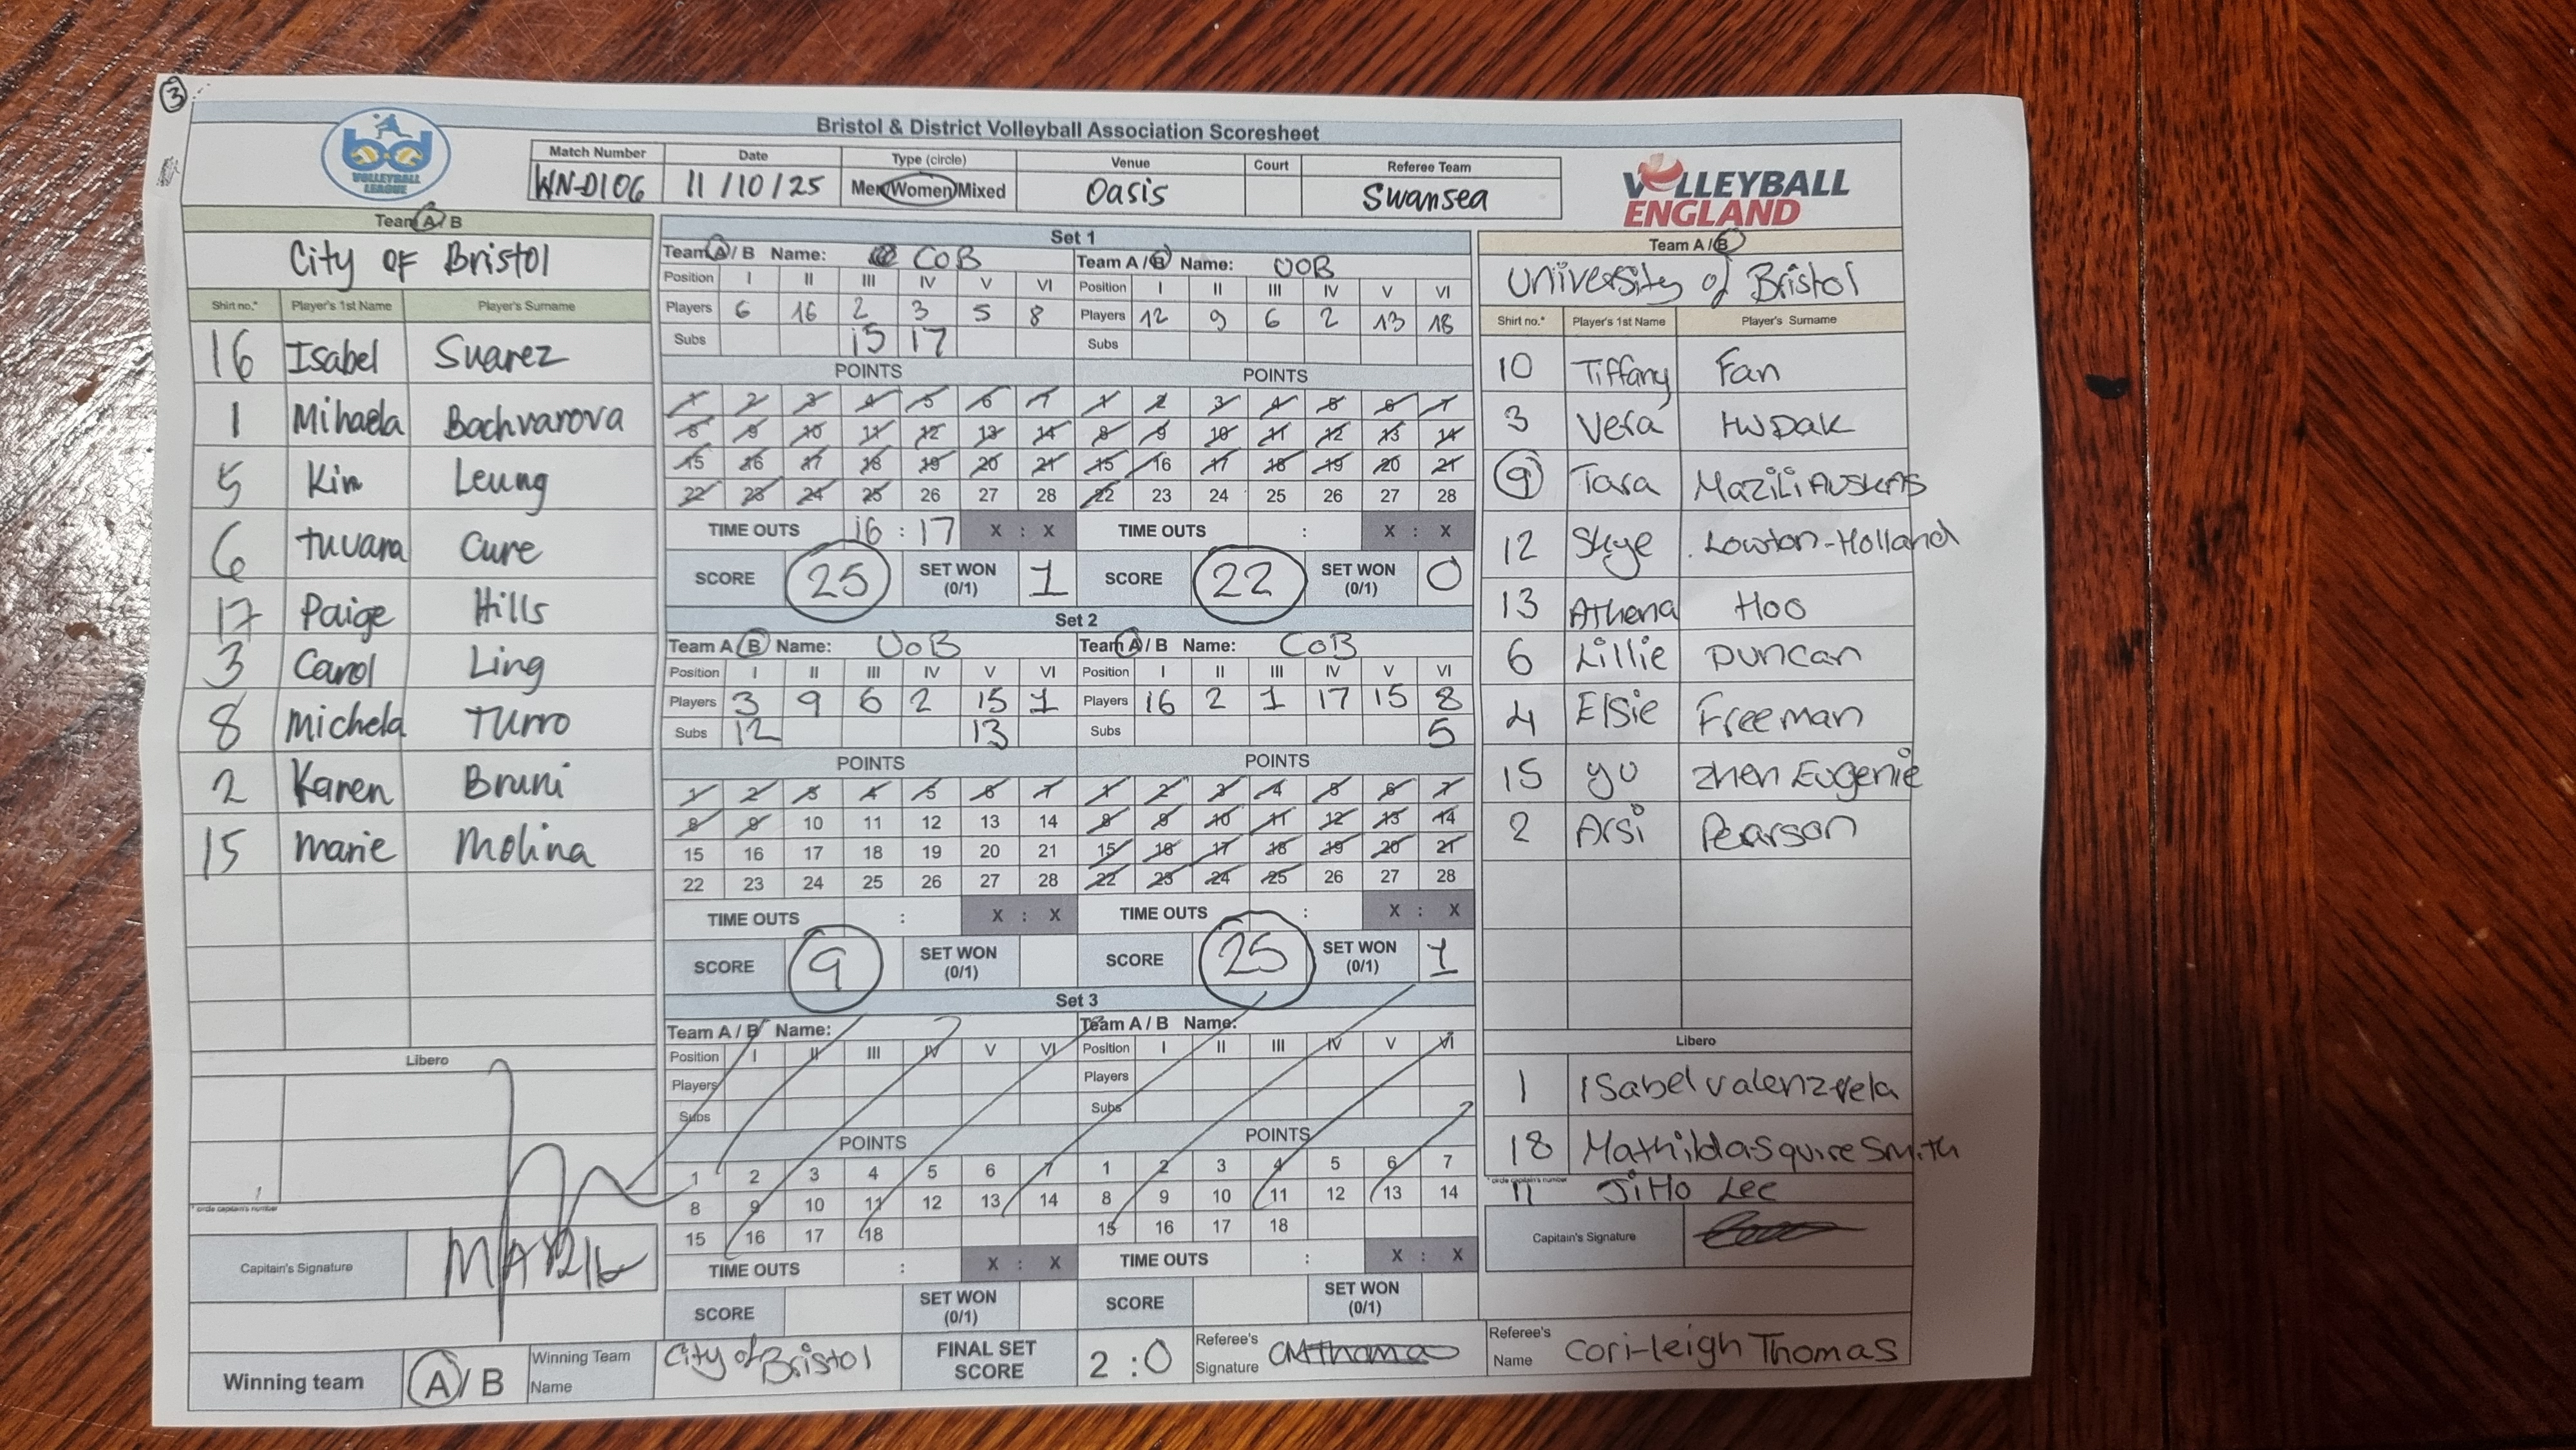 3
Bristol & District Volleyball Association Scoresheet
bd VOLLEYBALL LEAGUE
Match Number Date Type (circle) Venue Court Referee Team
WN-D106 11/10/25 Men/Women/Mixed Oasis Swansea
VOLLEYBALL ENGLAND
Team A / B
City OF Bristol
Shirt no.* Player's 1st Name Player's Surname
16 Isabel Suarez
1 Mihaela Bachvarova
5 Kim Leung
6 Tuvara Cure
17 Paige Hills
3 Carol Ling
8 Michela Turro
2 Karen Bruni
15 Marie Molina
Libero
* circle captain's number
Capitain's Signature MARIE
Set 1
Team A / B Name: COB
Position I II III IV V VI
Players 6 16 2 3 5 8
Subs 15 17
POINTS
1 2 3 4 5 6 7
8 9 10 11 12 13 14
15 16 17 18 19 20 21
22 23 24 25 26 27 28
TIME OUTS 16 : 17 X : X
SCORE 25 SET WON (0/1) 1
Team A / B Name: UOB
Position I II III IV V VI
Players 12 9 6 2 13 18
Subs
POINTS
1 2 3 4 5 6 7
8 9 10 11 12 13 14
15 16 17 18 19 20 21
22 23 24 25 26 27 28
TIME OUTS : X : X
SCORE 22 SET WON (0/1) 0
Set 2
Team A / B Name: UoB
Position I II III IV V VI
Players 3 9 6 2 15 1
Subs 12 13
POINTS
1 2 3 4 5 6 7
8 9 10 11 12 13 14
15 16 17 18 19 20 21
22 23 24 25 26 27 28
TIME OUTS : X : X
SCORE 9 SET WON (0/1)
Team A / B Name: CoB
Position I II III IV V VI
Players 16 2 1 17 15 8
Subs 5
POINTS
1 2 3 4 5 6 7
8 9 10 11 12 13 14
15 16 17 18 19 20 21
22 23 24 25 26 27 28
TIME OUTS : X : X
SCORE 25 SET WON (0/1) 1
Set 3
Team A / B Name:
Position I II III IV V VI
Players
Subs
POINTS
1 2 3 4 5 6 7
8 9 10 11 12 13 14
15 16 17 18
TIME OUTS : X : X
SCORE SET WON (0/1)
Team A / B Name:
Position I II III IV V VI
Players
Subs
POINTS
1 2 3 4 5 6 7
8 9 10 11 12 13 14
15 16 17 18
TIME OUTS : X : X
SCORE SET WON (0/1)
Team A / B
University of Bristol
Shirt no.* Player's 1st Name Player's Surname
10 Tiffany Fan
3 Vera
9 Tara
12 Skye Lowton-Holland
13 Athena Hoo
6 Lillie Duncan
4 Elsie Freeman
15 Yu Zhen Eugenie
2 Arsi Pearson
Libero
1 Isabel Valenzuela
18 Mathilda Squire Smith
* circle captain's number
11 JiHo Lee
Capitain's Signature
Winning team A / B Winning Team Name City of Bristol FINAL SET SCORE 2 : 0 Referee's Signature CMThomas Referee's Name Cori-leigh Thomas